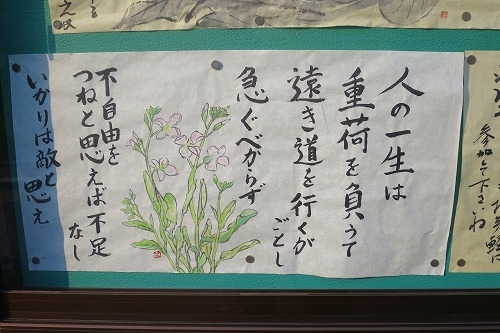 人の一生は
重荷を負うて
遠き道を行くが
ごとし
急ぐべからず
不自由を
つねと思えば不足
なし
いかりは敵と思え
参加して下さいね